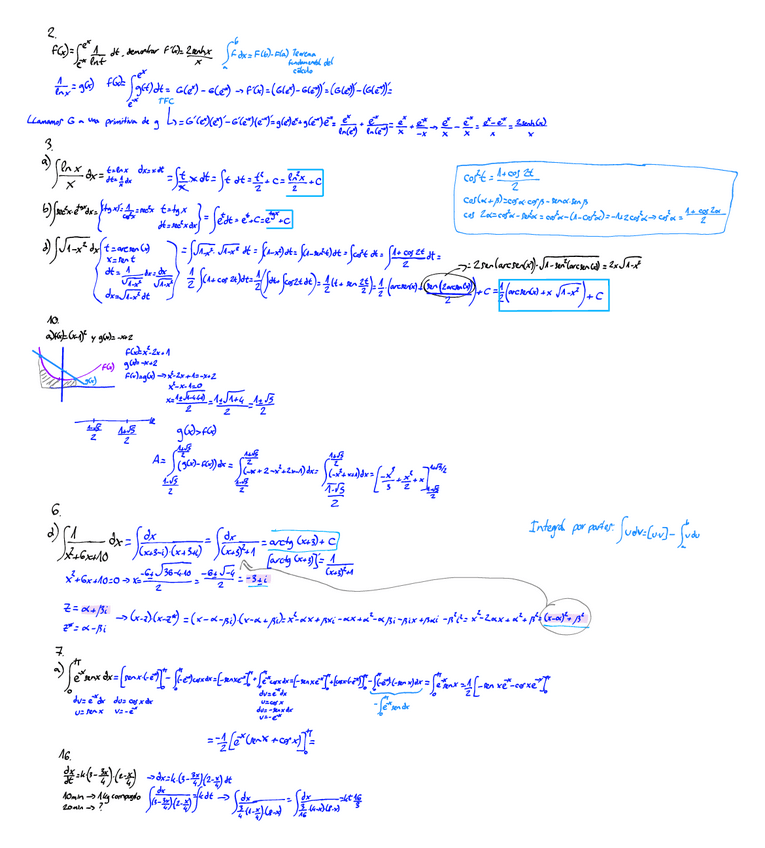 2.
f(x)=∫_{e^-x}^{e^x} 1/ln t dt, demostrar f'(x)=2senhx/x
∫_a^b f dx = F(b)-F(a) Teorema fundamental del cálculo
1/ln x = g(x) f(x)=∫_{e^-x}^{e^x} g(t)dt = G(e^x)-G(e^-x) → f'(x)=(G(e^x)-G(e^-x))'=(G(e^x))'-(G(e^-x))'=
TFC
Llamamos G a una primitiva de g ↳=G'(e^x)(e^x)'-G'(e^-x)(e^-x)'=g(e^x)e^x+g(e^-x)e^-x=e^x/ln(e^x)+e^-x/ln(e^-x)=e^x/x+e^-x/-x→e^x/x-e^-x/x=(e^x-e^-x)/x=2senh(x)/x
3.
a) ∫ln x/x dx= t=ln x dx=x dt dt=1/x dx =∫t/x·x dt=∫t dt=t²/2+C=ln²x/2+C
cos²t=(1+cos 2t)/2
cos(α+β)=cosα cosβ-senα senβ
cos 2α=cos²α-sen²α=cos²α-(1-cos²α)=-1+2cos²α→cos²α=(1+cos2α)/2
b) ∫sec²x·e^{tgx}dx={(tgx)'=1/cos²x=sec²x t=tgx dt=sec²x dx}=∫e^t dt=e^t+C=e^{tgx}+C
d) ∫√(1-x²) dx {t=arcsen(x) x=sen t dt=1/√(1-x²) dx=dx/√(1-x²) dx=√(1-x²) dt}=∫√(1-x²)·√(1-x²) dt=∫(1-x²)dt=∫(1-sen²t)dt=∫cos²t dt=∫(1+cos 2t)/2 dt=
→=2sen(arcsen(x))·√(1-sen²(arcsen(x)))=2x√(1-x²)
1/2∫(1+cos 2t)dt=1/2(∫dt+∫cos2t dt)=1/2(t+sen2t/2)=1/2(arcsen(x)+sen(2arcsen(x))/2)+C=1/2(arcsen(x)+x√(1-x²))+C
10.
a) f(x)=(x-1)² y g(x)=-x+2
f(x)=x²-2x+1
g(x)=-x+2
f(x)
g(x)
f(x)=g(x)→x²-2x+1=-x+2
x²-x-1=0
x=(1±√(1-4·(-1)))/2=(1±√(1+4))/2=(1±√5)/2
(1-√5)/2 (1+√5)/2
g(x)>f(x)
A=∫_{(1-√5)/2}^{(1+√5)/2}(g(x)-f(x))dx=∫_{(1-√5)/2}^{(1+√5)/2}(-x+2-x²+2x-1)dx=∫_{(1-√5)/2}^{(1+√5)/2}(-x²+x+1)dx=[-x³/3+x²/2+x]_{(1-√5)/2}^{(1+√5)/2}
6.
d) ∫1/(x²+6x+10) dx=∫dx/((x+3-i)·(x+3+i))=∫dx/((x+3)²+1)=arctg(x+3)+C
Integral por partes: ∫u dv=[uv]-∫_a^b v du
[arctg(x+3)]'=1/((x+3)²+1)
x²+6x+10=0→x=(-6±√(36-4·10))/2=(-6±√-4)/2=-3±i
z=α+βi
z*=α-βi
→(x-z)(x-z*)=(x-α-βi)·(x-α+βi)=x²-αx+βxi-αx+α²-αβi-βix+βαi-β²i²=x²-2αx+α²+β²=(x-α)²+β²
7.
a) ∫_0^π e^-x senx dx=[senx·(-e^-x)]_0^π-∫_0^π(-e^-x)cosx dx=[-senx e^-x]_0^π+∫_0^π e^-x cosx dx=[-senx e^-x]_0^π+[cosx(-e^-x)]_0^π-∫_0^π(-e^-x)(-senx)dx=∫_0^π e^-x senx=1/2[-senx e^-x-cosx e^-x]_0^π
dv=e^-x dx du=cosx dx
u=senx v=-e^-x
dv=e^-x dx
u=cosx
du=-senx dx
v=-e^-x
-∫_0^π e^-x senx dx
=-1/2[e^-x(senx+cosx)]_0^π=
16.
dx/dt=k(3-3x/4)·(2-x/4) →dx=k·(3-3x/4)(2-x/4)dt
10min→1kg compuesto
20min→?
∫dx/((3-3x/4)(2-x/4))=∫k dt→∫dx/(3/4(4-x)·1/4(8-x))=∫dx/(3/16(4-x)(8-x))=kt·16/3